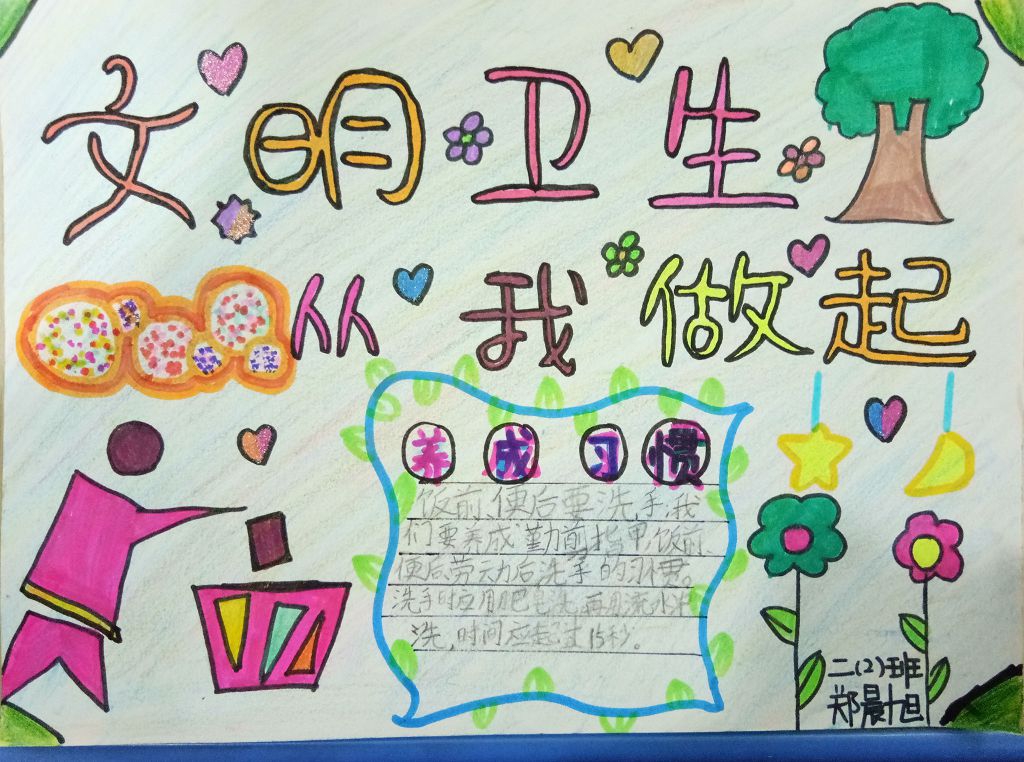 文明卫生
从我做起
养成习惯
饭前、便后要洗手,我
们要养成勤剪指甲,饭前、
便后劳动后洗手的习惯。
洗手时应用肥皂洗,再用流水冲
洗,时间应起过15秒。
二(2)班
郑晨旭